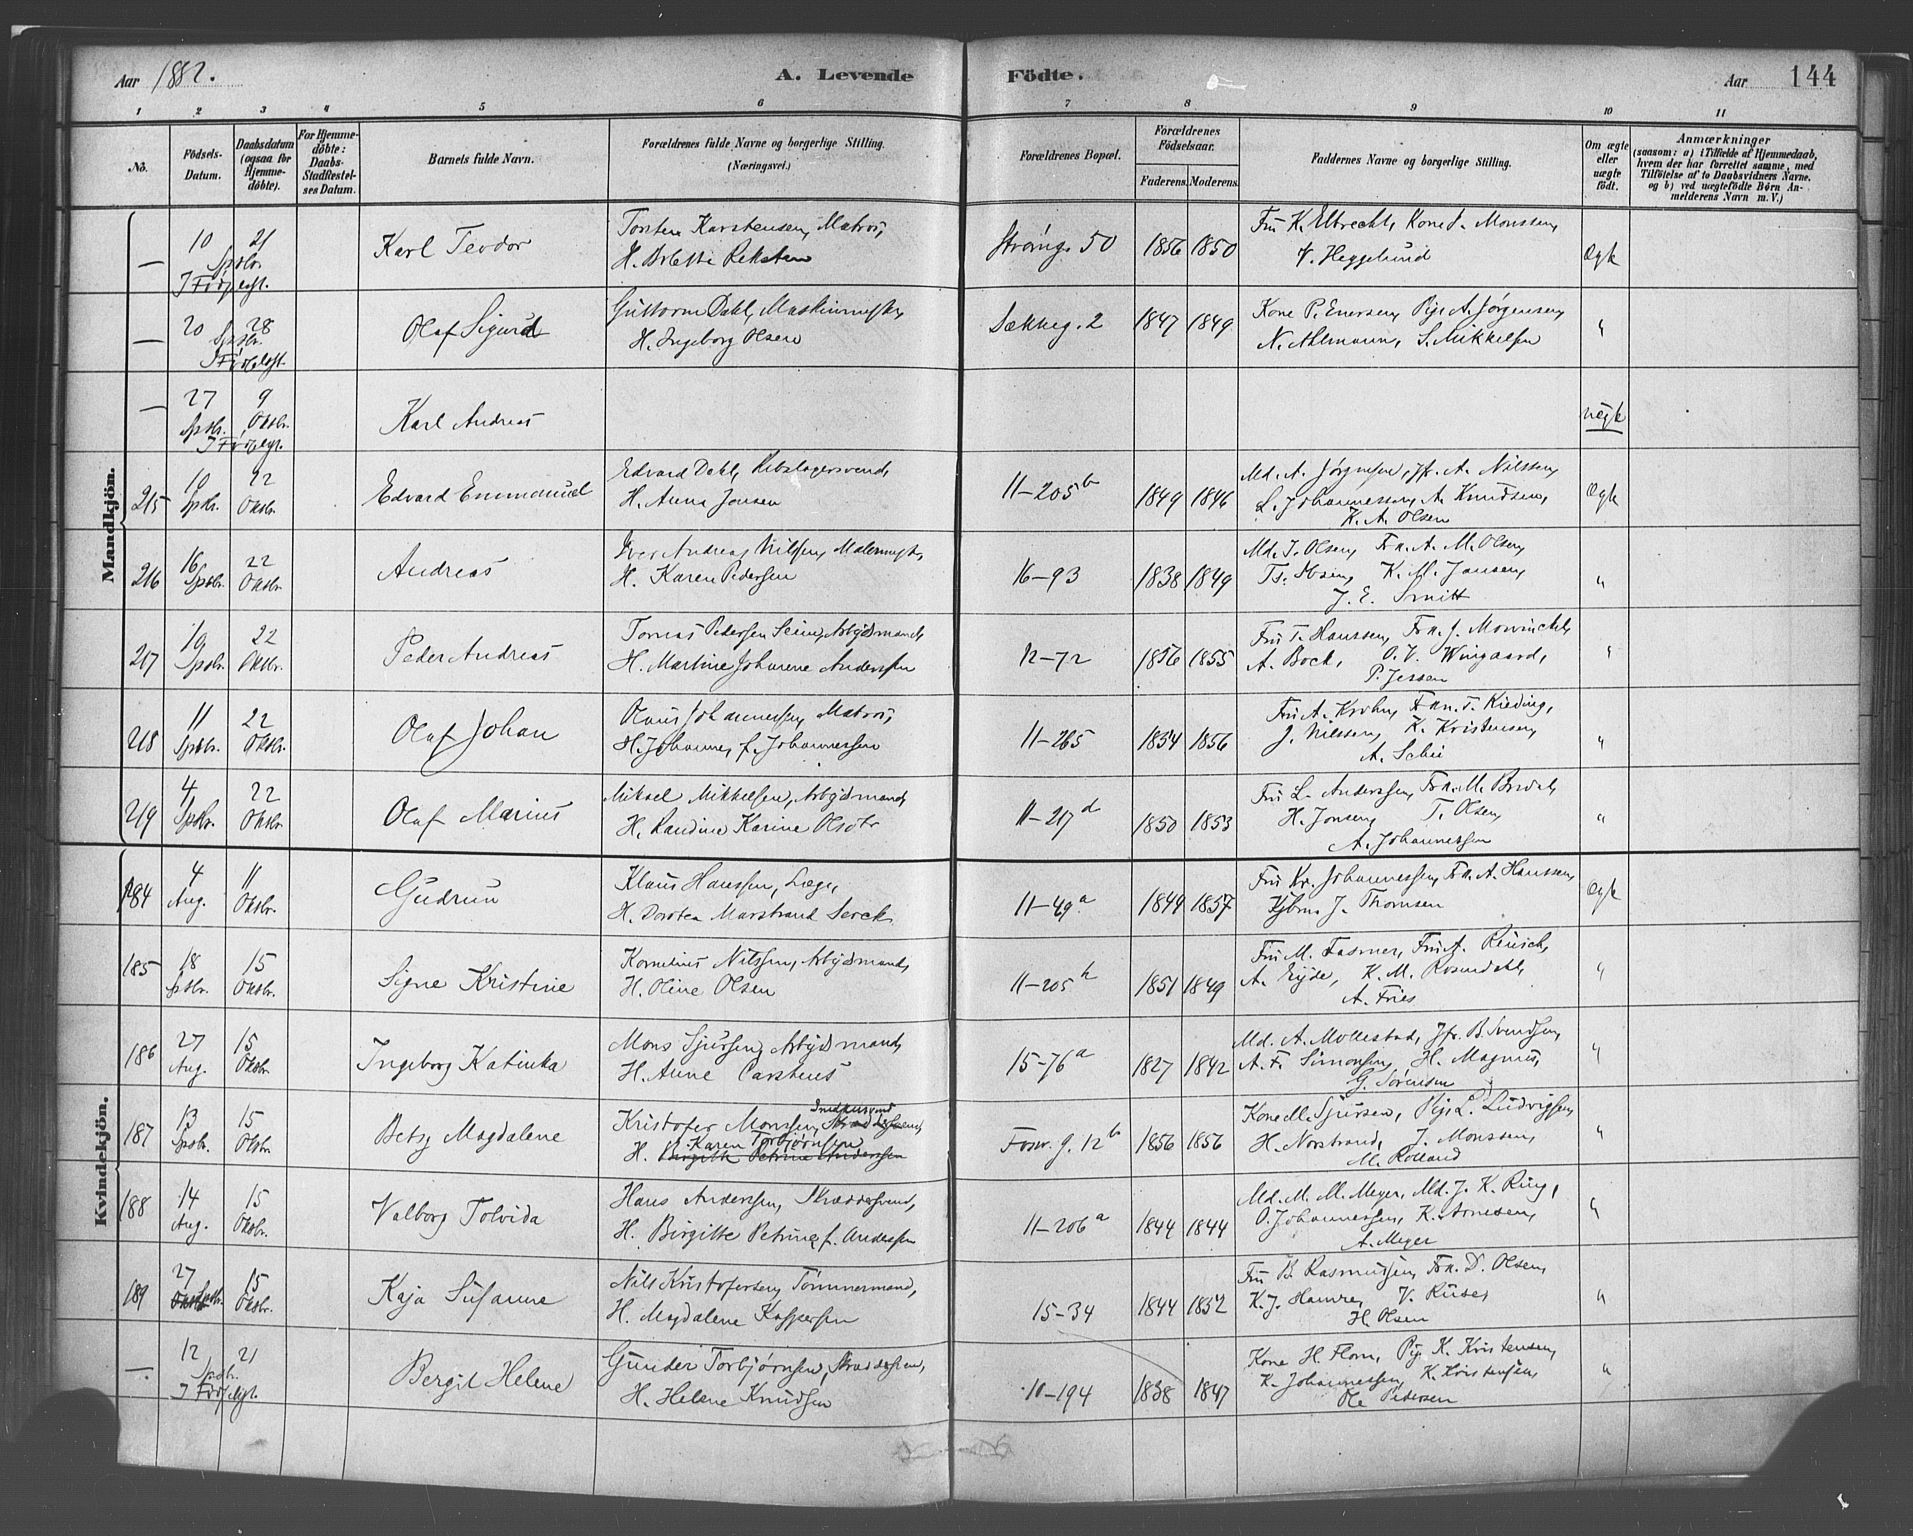 Aar 1882.
A. Levende Födte.
Aar 144
1 2 3 4 5 6 7 8 9 10 11
No.
Födsels-Datum.
Daabsdatum (ogsaa for Hjemmedöbte).
For Hjemmedöbte: Daabs-Stadfestelses Datum.
Barnets fulde Navn.
Forældrenes fulde Navne og borgerlige Stilling. (Næringsvei.)
Forældrenes Bopæl.
Forældrenes Födselsaar.
Faderens. Moderens.
Faddernes Navne og borgerlige Stilling.
Om ægte eller uægte födt.
Anmærkninger
(saasom: a) i Tilfælde af Hjemmedaab, hvem der har forrettet samme, med Tilföielse af to Daabsvidners Navne, og b) ved uægtefödte Börn Anmelderens Navn m. V.)
Mandkjön.
— 10 Sptbr. 21
Karl Teodor
Torsten Karstensen, Matros,
H. Reksten
50 1856 1850
Fru K. Elbrecht, Kone J. Monssen,
Heggelund
Ægte
— 20 Sptbr. 28
Olaf Sigurd
Guttorm Dahl, Maskinmester,
H. Ingeborg Olsen
Sækkeg. 2 1847 1849
Kone P. Enersen, Pige A. Jørgensen,
N. Ahlmann, S. Mikkelsen
"
— 27 Sptbr. 9 Oktbr.
Karl Andreas
uegte
215 10 Sptbr. 22 Oktbr.
Edvard Emmanuel
Edvard Dahl, Rebslagersvend,
H. Anna Jonsen
11-205b 1849 1846
Md. A. Jørgensen, Jfr. A. Nilssen,
L. Johannessen, A. Knudsen,
K. A. Olsen
Ægte
216 16 Sptbr. 22 Oktbr.
Andreas
Iver Andreas Nilssen, Malermest.,
H. Karen Pedersen
16-93 1838 1849
Md. J. Olsen, Frk. A. M. Olsen,
K. M. Jansen,
J. E. Smitt
"
217 19 Sptbr. 22 Oktbr.
Peder Andreas
Tomas Pedersen Seim, Arbejdsmand,
H. Martine Johanne Anderssen
12-72 1856 1855
Fru T. Hanssen, Frk. J. Mowinckel,
A. Bock, O. V. Wingaard,
P. Jessen
"
218 11 Sptbr. 22 Oktbr.
Olaf Johan
Olaus Johannessen, Matros,
H. Johanne, f. Johannessen
11-265 1854 1856
Fru A. Krohn, Frkn. T. Kieding,
J. Nilssen, K. Kristensen,
A. Schie
"
219 4 Sptbr. 22 Oktbr.
Olaf Marius
Mikael Mikkelsen, Arbejdsmand,
H. Randine Karine
11-217d 1850 1853
Fru L. Anderssen, Frkn. M. Bredal,
H. Jonsen, T. Olsen,
A. Johannessen
"
Kvindekjön.
184 4 Aug. 11 Oktbr.
Gudrun
Klaus Hanssen, Læge,
H. Dorotea Marstrand Serck
11-49a 1849 1857
Fru Kr. Johannessen, Frk. A. Hanssen,
Kjbm. J. Thomsen
Ægte
185 18 Sptbr. 15 Oktbr.
Signe Kristine
Kornelius Nilssen, Arbejdsmand,
H. Oline Olsen
11-205h 1851 1849
Fru M. Fasmer, Fru A. Reusch,
A. Eyde, K. M. Rosendahl,
A. Fries
"
186 27 Aug. 15 Oktbr.
Ingeborg Katinka
Mons Sjursen, Arbejdsmand,
H. Anne Carstens
15-76a 1827 1842
Md. A. Mollestad, Jfr. B. Svendsen,
A. F. Simonsen, H. Magnus,
G. Sørensen
"
187 13 Sptbr. 15 Oktbr.
Betsy Magdalene
Kristofer Monssen,
H. Karen Torbjørnsen
Birgitte Petrine Anderssen
Fosw. g. 12b 1856 1856
Kone M. Sjursen, Pige L. Ludvigsen,
H. Norstrand, J. Monssen,
M. Rolland
"
188 14 Aug. 15 Oktbr.
Valborg Tolvida
Hans Anderssen, Skræddersvend,
H. Birgitte Petrine, f. Anderssen
11-206a 1844 1844
Md. M. M. Meyer, Md. J. K. Ring,
O. Johannessen, K. Arnesen,
A. Meyer
"
189 27 Sptbr. 15 Oktbr.
Kaja Susanne
Nils Kristofersen, Tömmermand,
H. Magdalene Kaspersen
15-34 1844 1852
Fru B. Rasmussen, Frk. D. Olsen,
K. J. Hamre, V. Ruse,
H. Olsen
"
— 12 Sptbr. 21
Bergit Helene
Gunder Torbjørnsen,
H. Helene Knudsen
10-194 1838 1847
Kone H. Flom, Pige K. Kristensen,
K. Johannessen, K. Kristensen,
Ole Pedersen
"